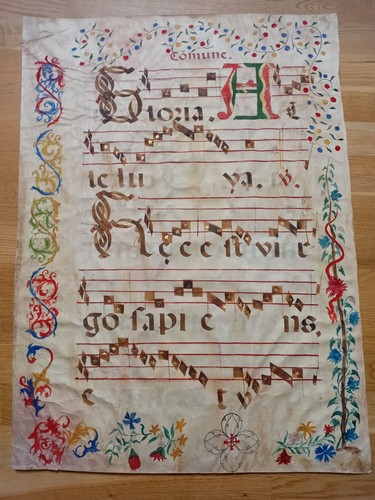 Comune
Gloria. Al
le lu ya. v.
Hec e st vir
go sapi e ns,
e t vn